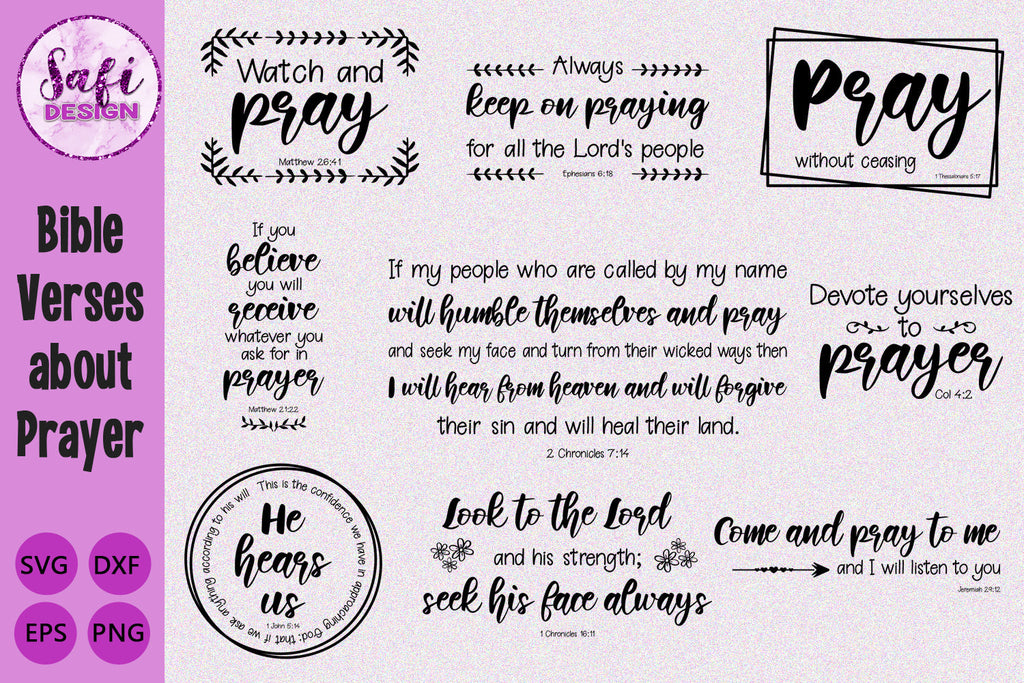 Safi
DESIGN
Bible
Verses
about
Prayer
SVG
DXF
EPS
PNG
Watch and
pray
Matthew 26:41
Always
keep on praying
for all the Lord's people
Ephesians 6:18
Pray
without ceasing
1 Thessalonians 5:17
If you
believe
you will
receive
whatever you
ask for in
prayer
Matthew 21:22
If my people who are called by my name
will humble themselves and pray
and seek my face and turn from their wicked ways then
I will hear from heaven and will forgive
their sin and will heal their land.
2 Chronicles 7:14
Devote yourselves
to
prayer
Col 4:2
This is the confidence we have in approaching God: that if we ask anything according to his will
He
hears
us
1 John 5:14
Look to the Lord
and his strength;
seek his face always
1 Chronicles 16:11
Come and pray to me
and I will listen to you
Jeremiah 29:12